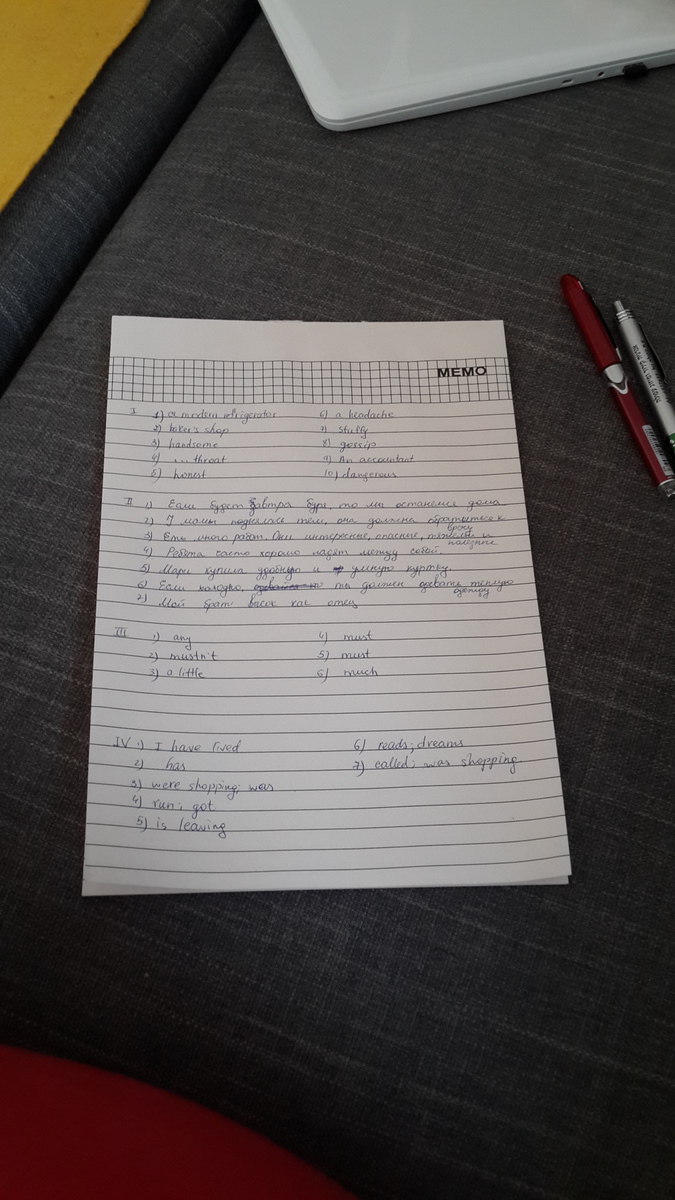 MEMO
I 1) a modern refrigerator 6) a headache
2) baker's shop 7) stuffy
3) handsome 8) gossip
4) ... throat 9) An accountant
5) honest 10) dangerous
II 1) Если будет завтра буря, то мы останемся дома
2) У мамы поднялась тем, она должна обратиться к врачу
3) Еть много работ. Они интересные, опасные, и полезные
4) Ребята часто хорошо ладят между собой.
5) Мари купила удобную и умную куртку.
6) Если холодно, ты должен одевать теплую одежду
7) Мой брат высок как отец
III 1) any 4) must
2) mustn't 5) must
3) a little 6) much
IV 1) I have lived 6) reads; dreams
2) has 7) called; was shopping
3) were shopping; was
4) run; got
5) is leaving